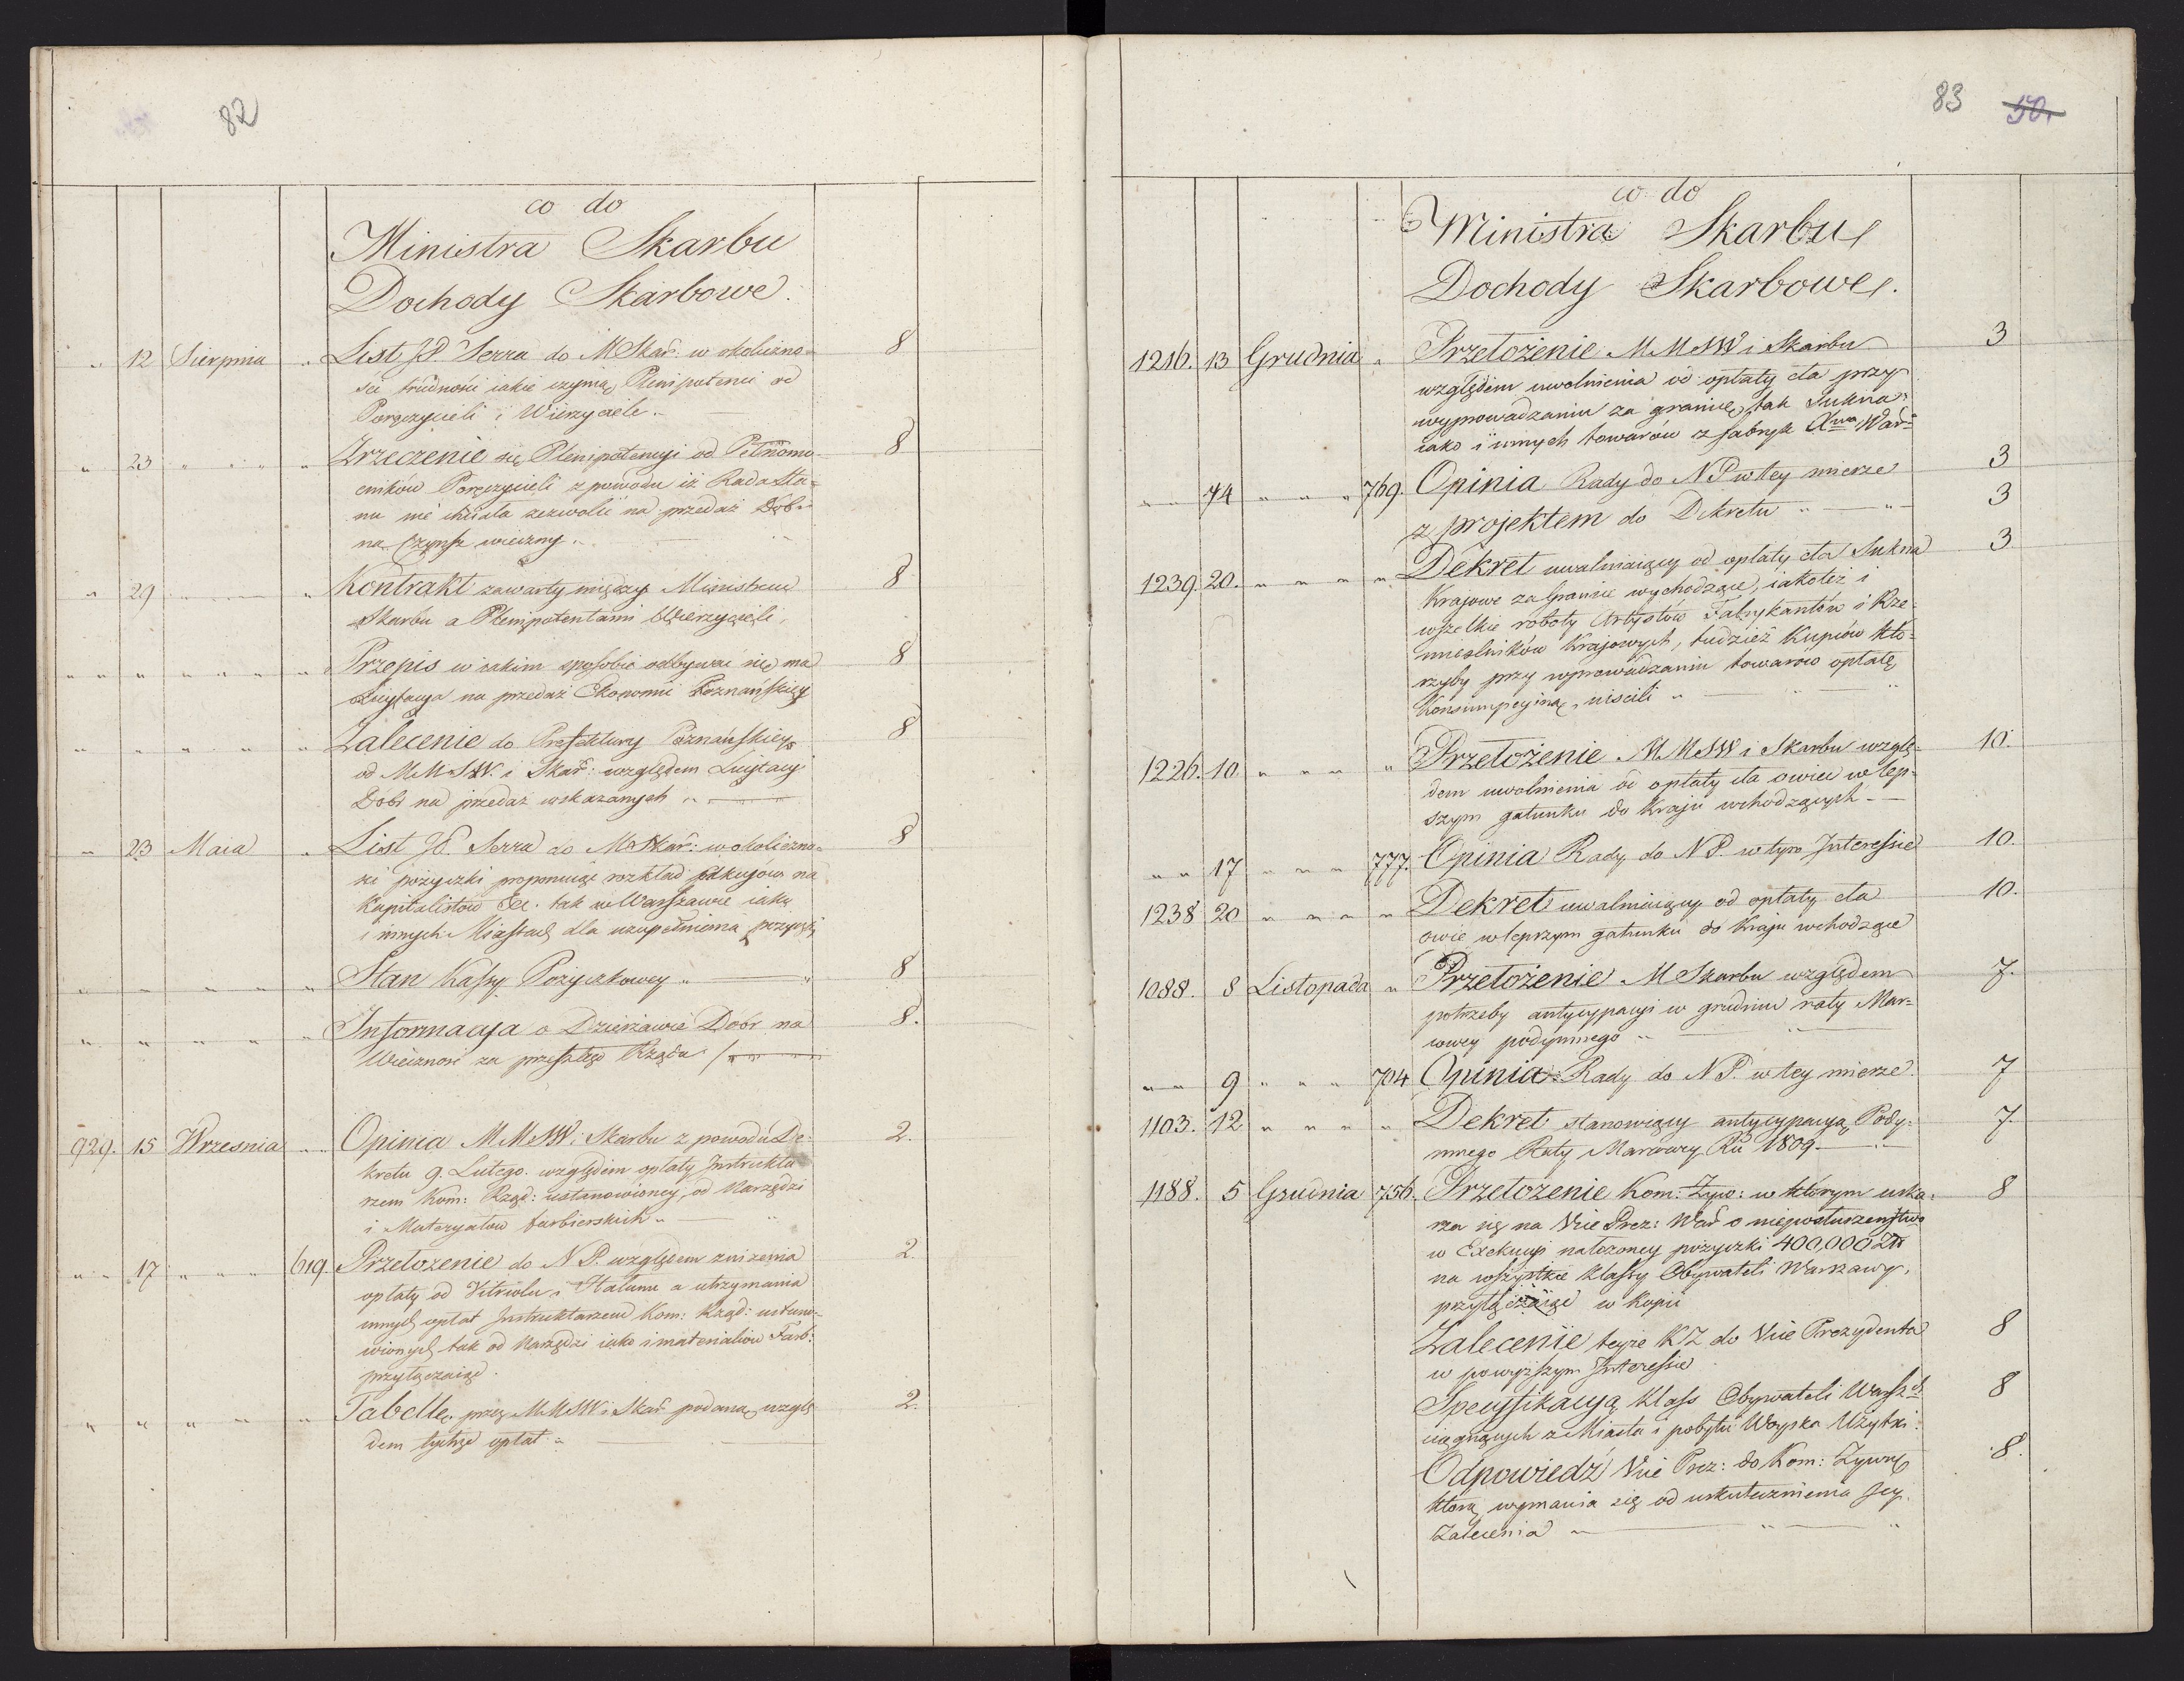 82
co do
Ministra Skarbu
Dochody Skarbowe.
" 12 Sierpnia " List JP. Serra do M Skar: w okoliczno= 8
sci trudności iakie czynią Plenipotenci od
Poręczycieli i Wierzycieli. —
" 23 " " " " Zrzeczenie się Plenipotencyi od Pełnomo- 8
cników Poręczycieli z powodu iż Rada Sta=
nu nie chciała zezwolić na przedaż Dóbr
na Czynsz wieczny. "
" 29 " — " Kontrakt zawarty między Ministrem 8
Skarbu a Plenipotentami Wierzycieli,
" " " " " " " Przepis w iakim sposobie odbywać się ma 8
Licytacya na przedaż Ekonomii Poznańskiey
" " " " " " Zalecenie do Prefektury Poznańskiey 8
od M M S W. i Skar: względem Licytacyi
Dóbr na przedaż wskazanych " —
" 23 Maia " List JP. Serra do M Skar: w okoliczno= 8
ści pożyczki proponuiąc rozkład na
Kapitalistów &c. tak w Warszawie iako
i innych Miastach dla uzupełnienia
" " " " " " Stan Kassy Pożyczkowey " — " 8
" " " " " " Informacya o Dzierżawie Dóbr na 8.
Wieczność za przeszłego Rządu
929. 15 Wrzesnia " " Opinia M M S W i Skarbu z powodu De= 2.
kretu 9. Lutego. względem opłaty Instrukta
rzem Kom: Rząd: ustanowioney, od Narzędzi
i Materyałów farbierskich " — "
" " 17 " " " 619. Przełożenie do N P. względem zniżenia 2.
opłaty od Vitriolu i Hałunu a utrzymania
innych opłat Instruktarzem Kom: Rząd: ustano=
wionych tak od Narzędzi iako i materiałów Farb:
przyłączaiąc.
" " " " " Tabellę przez M M S W i Skar podaną wzglę 2.
dem tychże opłat " —
83 50.
co do
Ministra Skarbu
Dochody Skarbowe.
1216. 13 Grudnia " Przełożenie M M S W i Skarbu 3
względem uwolnienia od opłaty cła przy
wyprowadzaniu za granicę tak Sukna
iako i innych towarów z fabryk Xwa War=
" " 14 " " " 769. Opinia Rady do N P w tey mierze 3
z projektem do Dekretu " — " 3
1239. 20. " " " " Dekret uwalniaiący od opłaty cła Sukna 3
Krajowe za Granice wychodzące, iakoteż i
wszelkie roboty Artystów Fabrykantów i Rze=
mieslników Krajowych, tudzież Kupców któ=
rzyby przy wprowadzaniu towarów opłatę
Konsumpcyiną uiscili " — "
1226. 10 " " " " Przełożenie M M S W i Skarbu wzglę= 10.
dem uwolnienia od opłaty cła owiec w lep=
szym gatunku do Kraju wchodzących. —
" " 17 " " " 777. Opinia Rady do N P. w tym Interessie 10.
1238 20 " " " " Dekret uwalniaiący od opłaty cła 10.
owce w lepszym gatunku do Kraju wchodzące
1088. 8 Listopada " Przełożenie M Skarbu względem 7.
potrzeby antycypacyi w grudniu raty Mar=
cowey podymnego " —
" " 9 " " " 704 Opinia Rady do N P. w tey mierze. 7
1103. 12 " " " " Dekret stanowiący antycypacyą Pody= 7.
mnego Raty Marcowey Ru 1809 — "
1188. 5 Grudnia 756. Przełożenie Kom: Żyw: w którym uska= 8
rza się na Vice Prez: War o nieposłuszeństwo
w Exekucyi nałożoney pożyczki 400,000 Zł
na wszystkie klassy Obywateli Warszawy,
przyłączaiąc w kopii
Zalecenie teyże K Z do Vice Prezydenta 8
w powyższym Interessie
Specyfikacyą Klass Obywateli Warsz. 8
ciągnących z Miasta i pobytu Woyska Użytki.
Odpowiedź Vice Prez: do Kom: Żywn 8.
którą wymawia się od uskutecznienia Jey
Zalecenia " — " — "